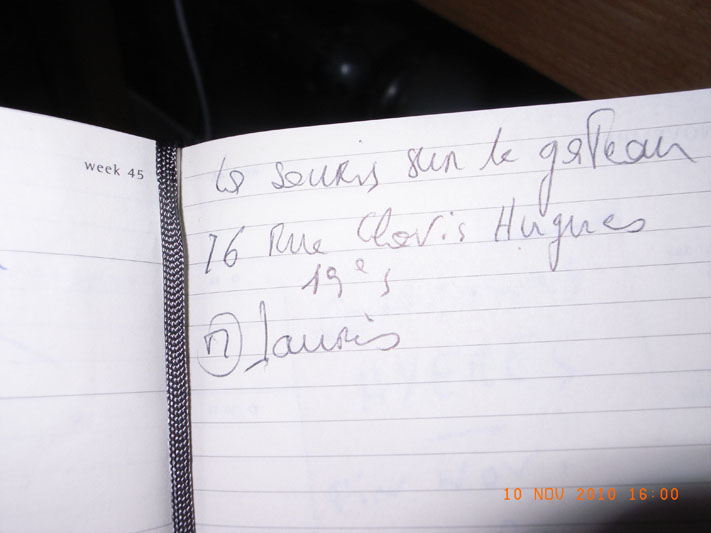 week 45
La souris sur le gâteau
76 Rue Clovis Hugues
19e s
m Jaurès
10 NOV 2010 16:00